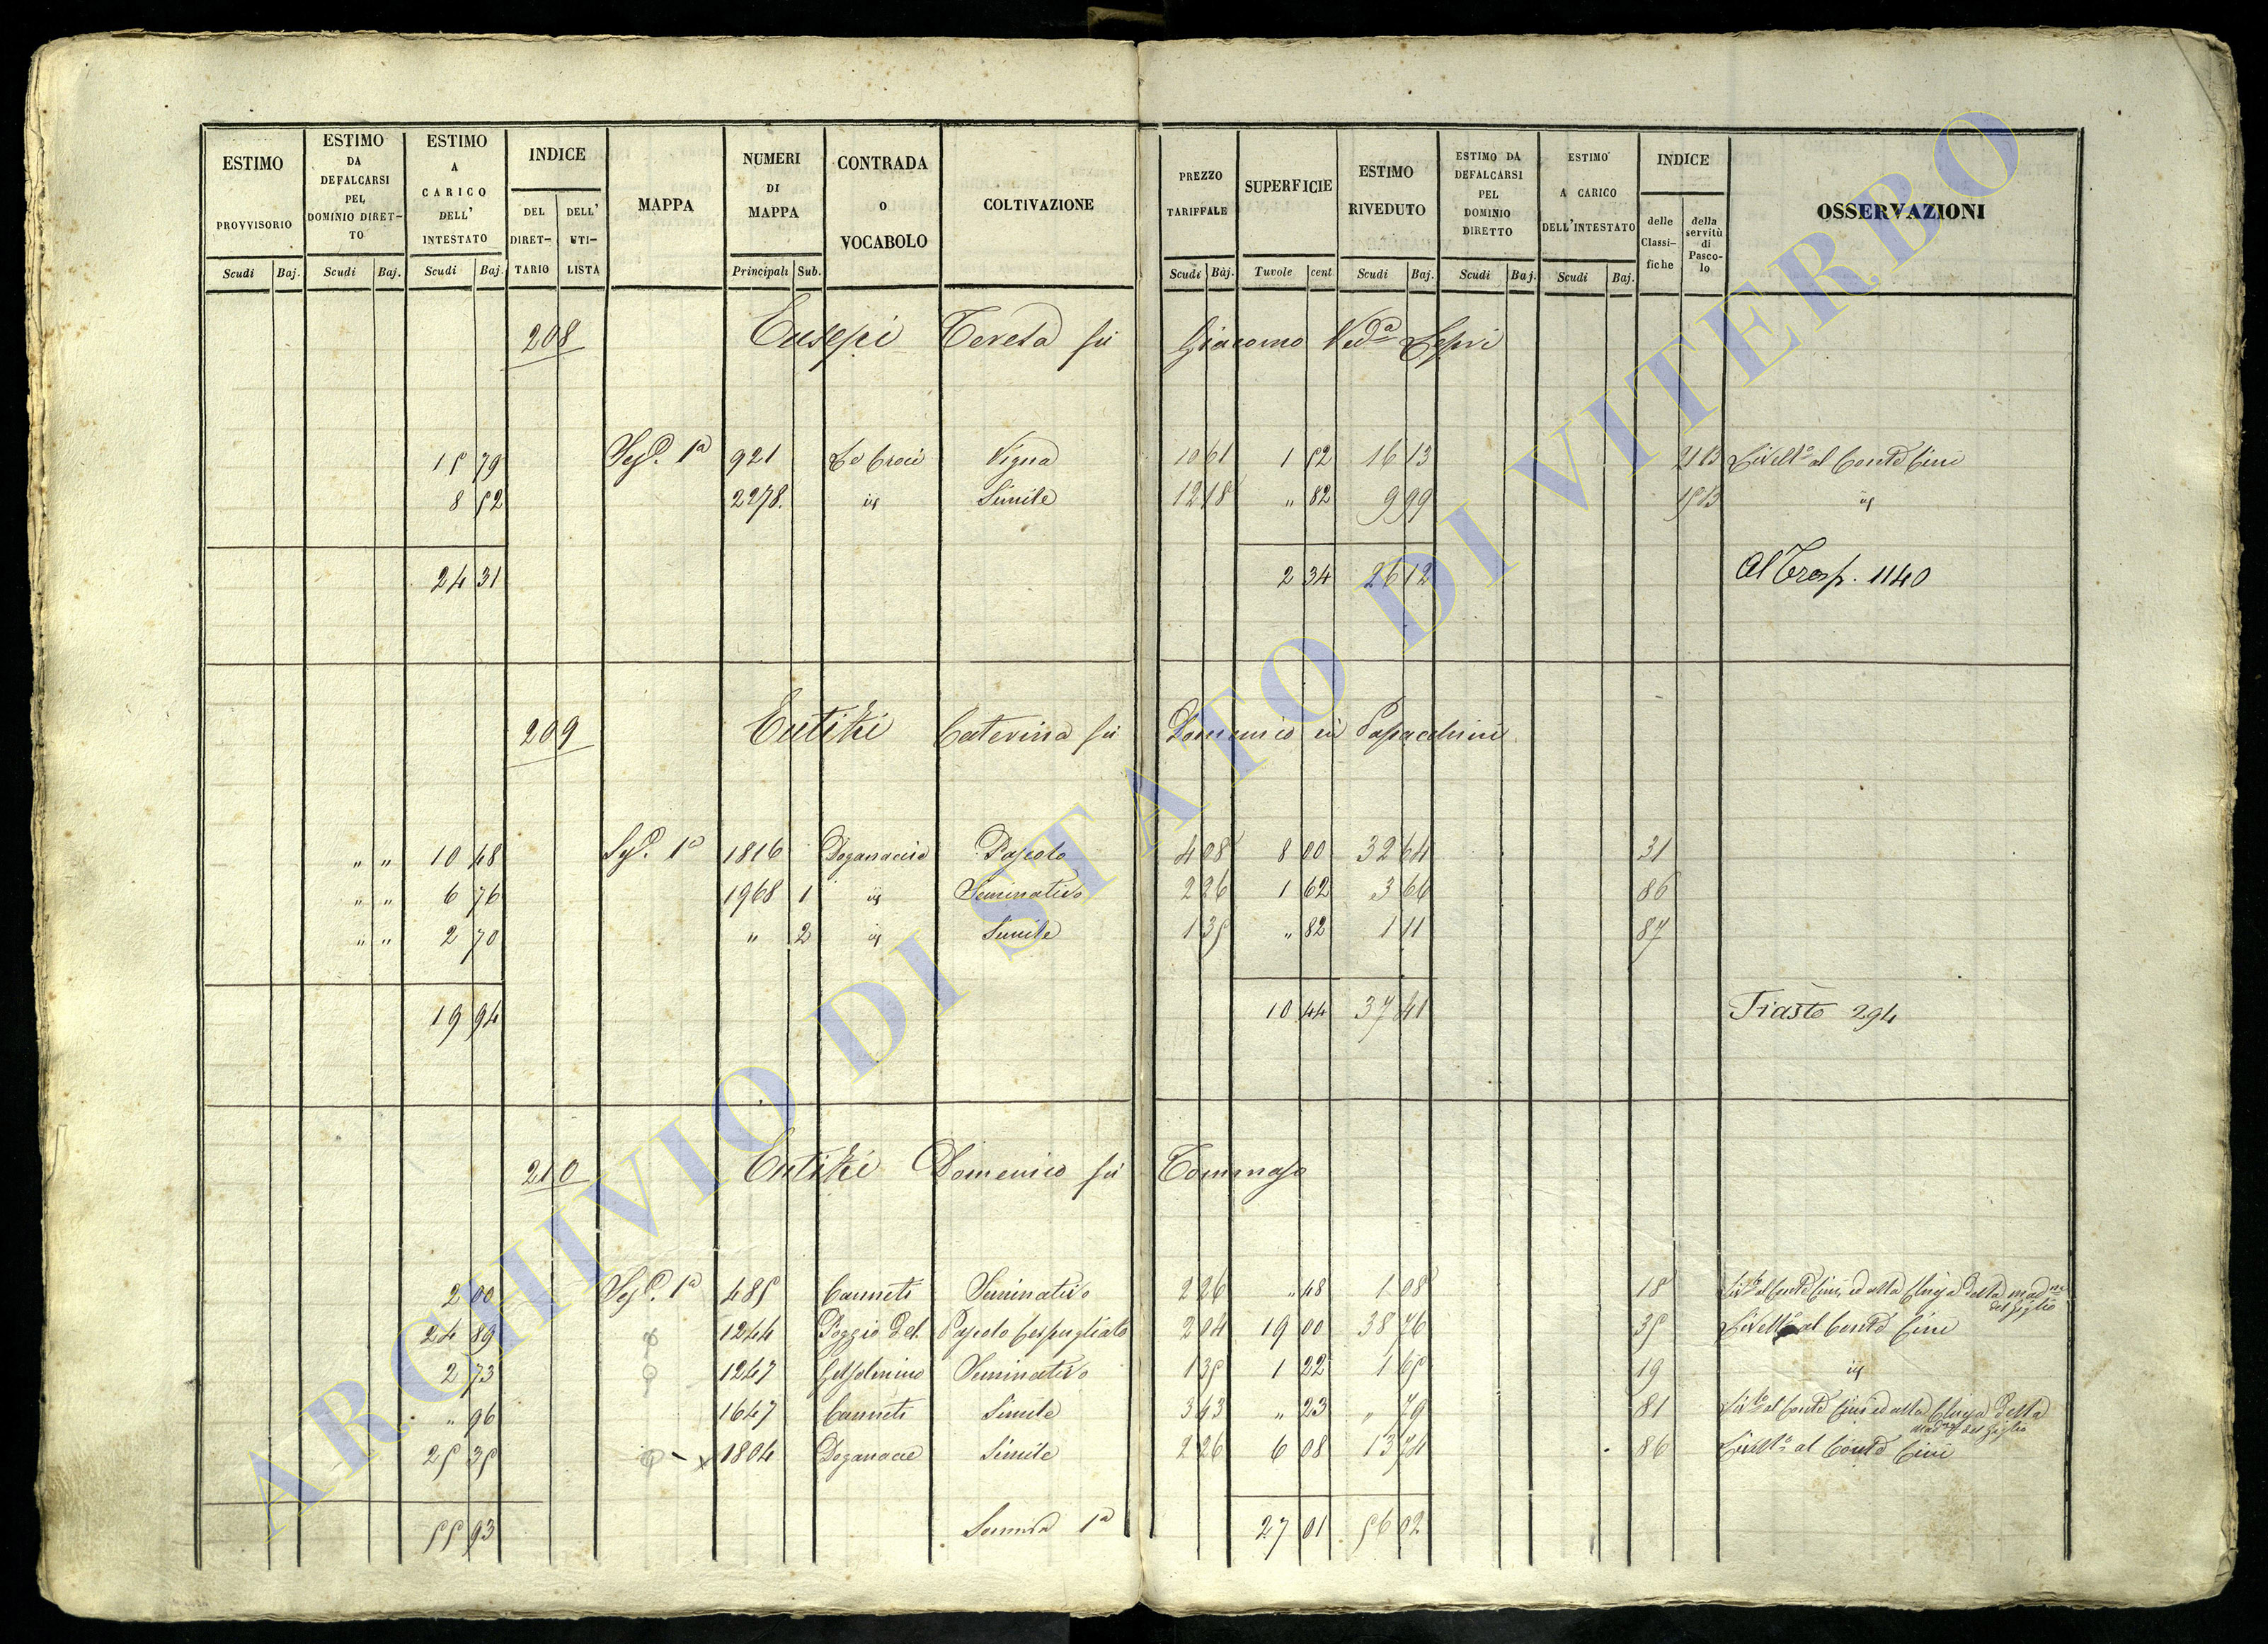 ESTIMO PROVVISORIO Scudi Baj.
ESTIMO DA DEFALCARSI PEL DOMINIO DIRETTO Scudi Baj.
ESTIMO A CARICO DELL' INTESTATO Scudi Baj.
INDICE DEL DIRETTARIO DELL' UTILISTA
MAPPA
NUMERI DI MAPPA Principali Sub.
CONTRADA O VOCABOLO
COLTIVAZIONE
PREZZO TARIFFALE Scudi Baj.
SUPERFICIE Tavole cent.
ESTIMO RIVEDUTO Scudi Baj.
ESTIMO DA DEFALCARSI PEL DOMINIO DIRETTO Scudi Baj.
ESTIMO A CARICO DELL'INTESTATO Scudi Baj.
INDICE delle Classifiche della servitù di Pascolo
OSSERVAZIONI
208 Eusepi Teresa fu Giacomo Ved.a Lepri
15 79 1a 921 Le Croci Vigna 10 61 1 52 16 13 Livell.o al Conte Cini
8 52 2278. id Simile 12 18 " 82 9 99 id
24 31 2 34 26 12 Al Trasp. 1140
209 Eutizi Caterina fu Domenico in Papacchini
" " 10 48 1a 1816 Doganaccia Pascolo 4 08 8 00 32 64 31
" " 6 76 1968 1 id Seminativo 2 26 1 62 3 66 86
" " 2 70 " 2 id Simile 1 35 " 82 1 11 87
19 94 10 44 37 41 294
210 Eutizi Domenico fu Tommaso
2 00 1a 485 Canneti Seminativo 2 26 " 48 1 08 18 Liv.o al Conte Cini, ed alla Chiesa della Mad.na del Giglio
24 89 1244 Poggio del Pascolo Cespugliato 2 04 19 00 38 76 35 Livell.o al Conte Cini
2 73 1247 Gelsomino Seminativo 1 35 1 22 1 65 19 id
" 96 1647 Canneti Simile 3 43 " 23 " 79 81 Liv.o al Conte Cini ed alla Chiesa della Mad.na del Giglio
25 35 1804 Doganacce Simile 2 26 6 08 13 74 86 Livell.o al Conte Cini
55 93 Somma 1a 27 01 56 02
ARCHIVIO DI STATO DI VITERBO